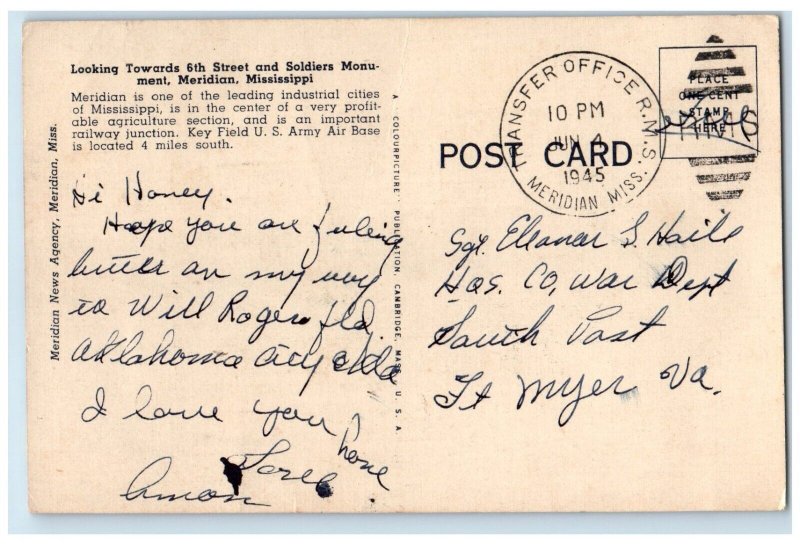 Looking Towards 6th Street and Soldiers Monu-
ment, Meridian, Mississippi
Meridian is one of the leading industrial cities
of Mississippi, is in the center of a very profit-
able agriculture section, and is an important
railway junction. Key Field U. S. Army Air Base
is located 4 miles south.
Meridian News Agency, Meridian, Miss.
A "COLOURPICTURE" PUBLICATION, CAMBRIDGE, MASS., U. S. A.
Hi Honey.
Hope you are feeling
better on my way
to Will Rogers fld
Oklahoma City Okla
I love you hone
Love
Amon
POST CARD
TRANSFER OFFICE R.M.S.
10 PM
JUN 4
1945
MERIDIAN MISS.
PLACE
ONE CENT
STAMP
HERE
Sgt. Eleanor S. Haile
Hqs. Co, War Dept
South Post
Ft Myer Va.